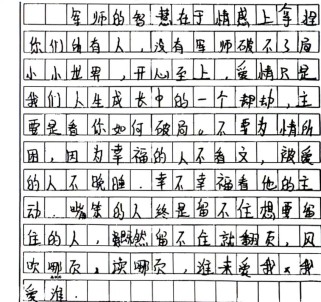 军师的智慧在于情感上拿捏
你们所有人，没有军师破不了局
小小世界，开心至上，爱情只是
我们人生成长中的一个劫，主
要是看你如何破局。不要为情所
困，因为幸福的人不看文，被爱
的人不晚睡.幸不幸福看他的主
动.嘴笨的人终是留不住想要留
住的人，既然留不住就翻页，风
吹哪页，读哪页，谁来爱我，我
爱谁.